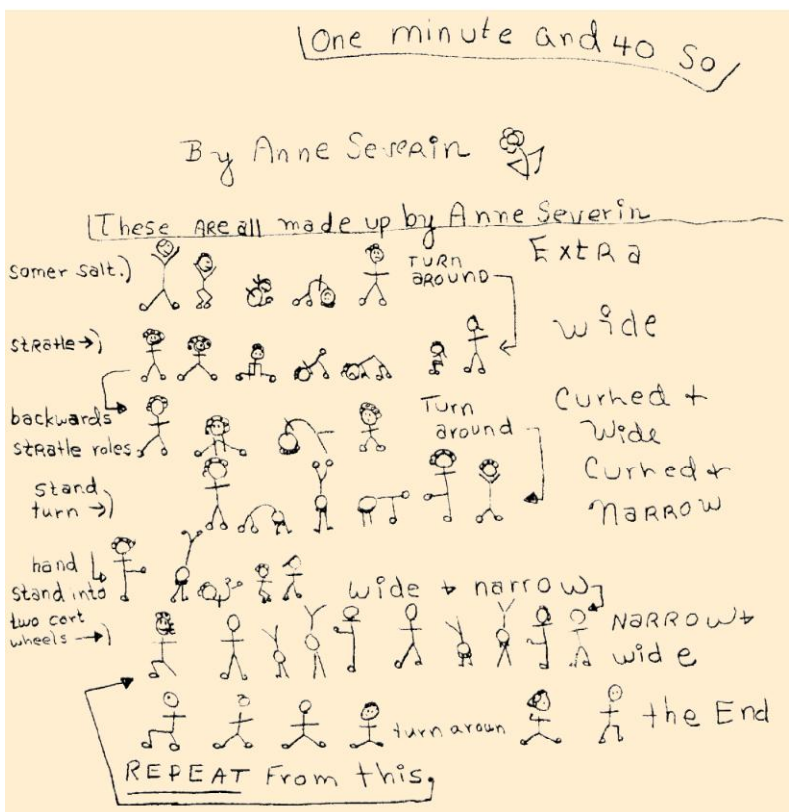 One minute and 40 So
By Anne Severin
These ARE all made up by Anne Severin
Extra
somer salt.)
TURN
AROUND
wide
stRatle →)
backwards
stRatle roles
Turn
around
Curhed +
Wide
Stand
turn →)
Curhed +
NARROW
hand
stand into
wide + narrow
two cort
wheels →)
NARROW +
wide
turn aroun
the End
REPEAT From this